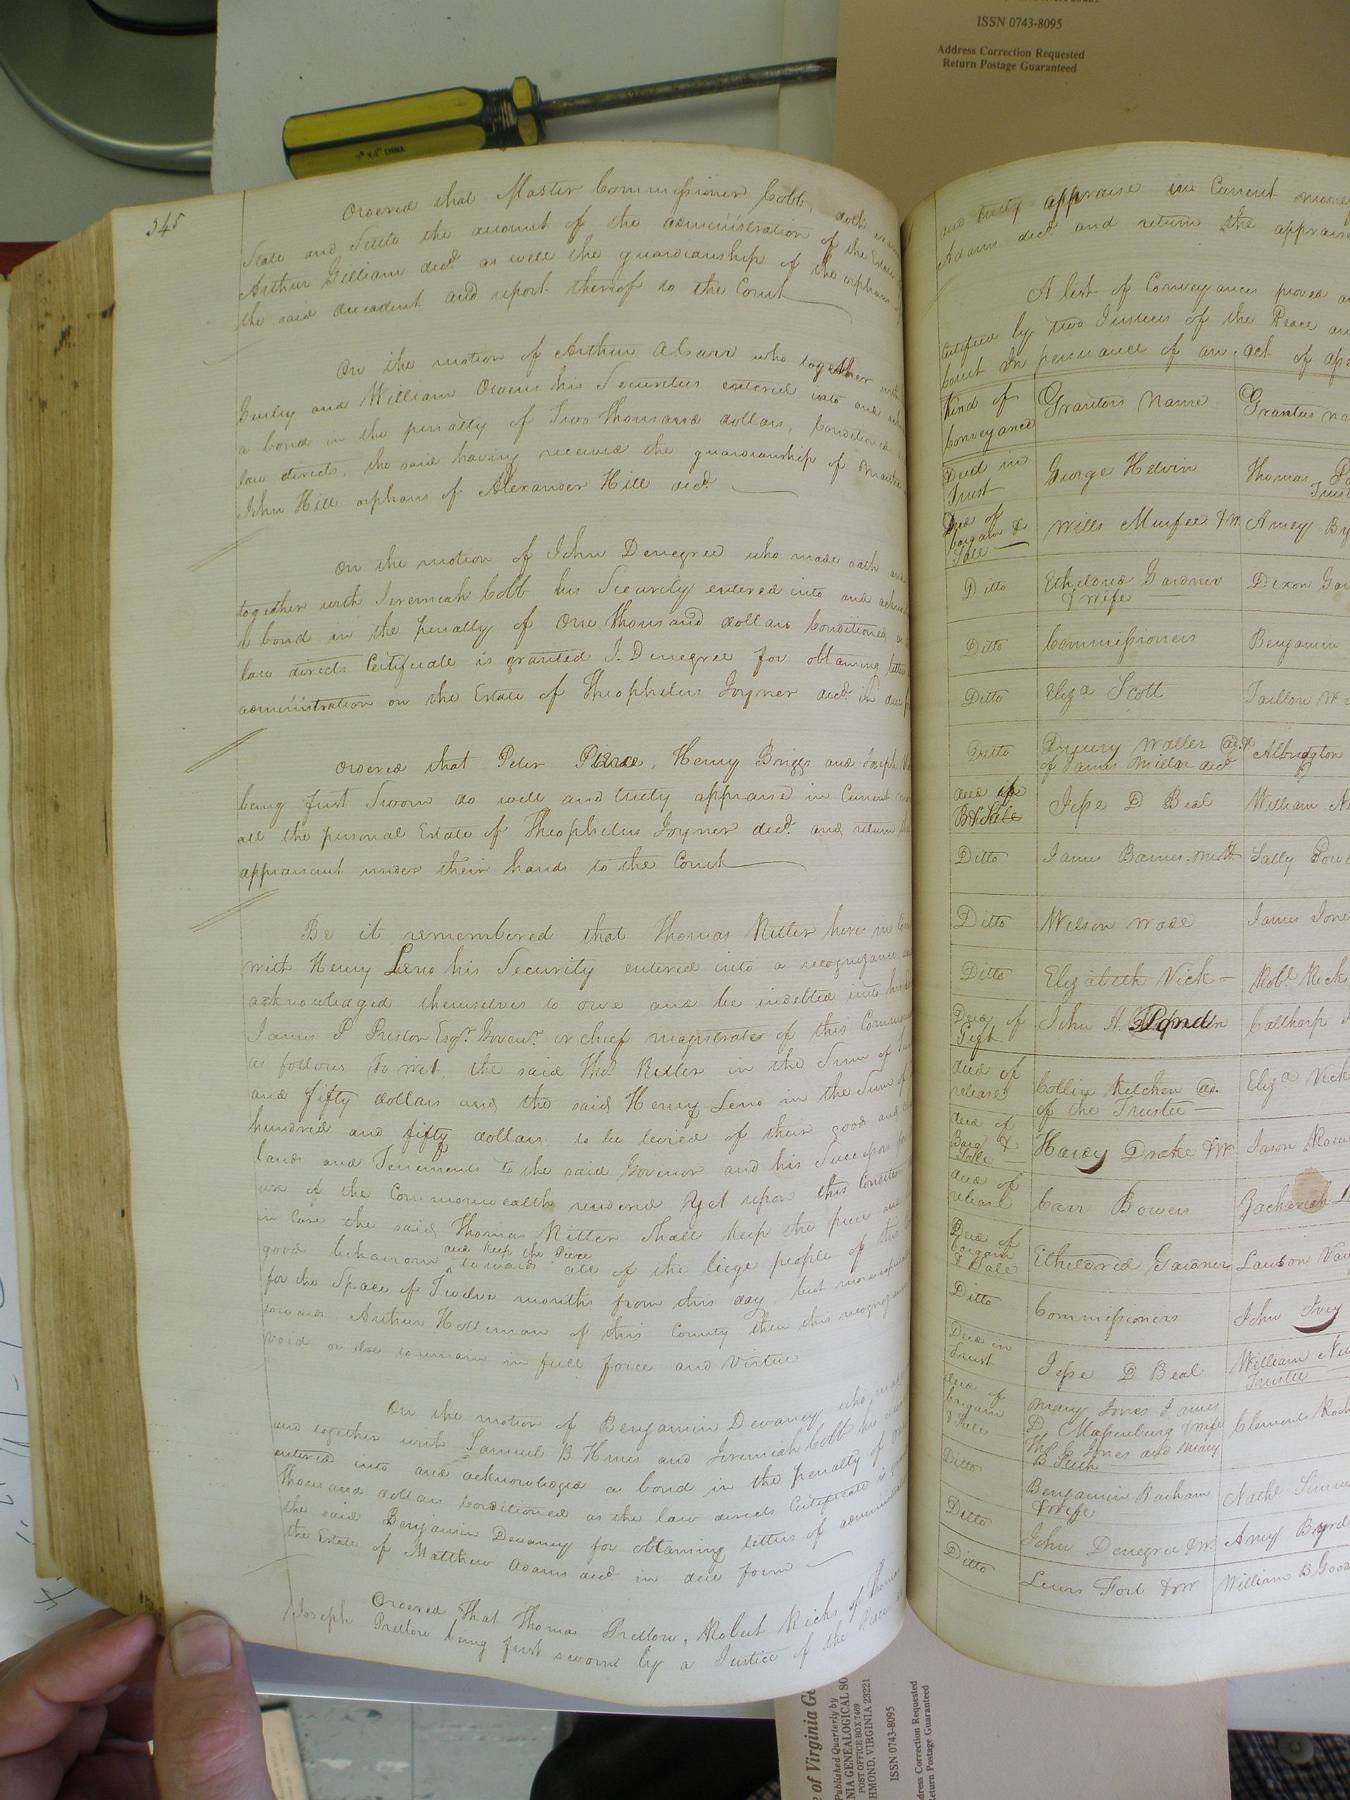 ISSN 0743-8095
Address Correction Requested
Return Postage Guaranteed
345
Ordered that Master Commissioner Cobb, doth
State and Settle the account of the administration of the Estate
Arthur Gilliam decd. as well the guardianship of the orphans
the said decedent and report thereof to the Court
On the motion of Arthur who together
and William Owens his Securities entered into and
a bond in the penalty of Two thousand dollars, Conditioned
law directs, the said having received the guardianship of
John Hill orphans of Alexander Hill decd.
On the motion of John Denegree who made oath
together with Jeremiah Cobb his Security entered into and
a bond in the penalty of One thousand dollars Conditioned
law directs Certificate is granted J. Denegree for obtaining
administration on the Estate of Theophelus Joyner decd. in due
Ordered that Peter Pierce, Henry Briggs and Joseph
being first Sworn do well and truly appraise in Current
all the personal Estate of Theophelus Joyner decd. and return
appraisment under their hands to the Court
Be it remembered that Thomas Ritter here in
with Henry Leno his Security entered into a recognizance
acknowledged themselves to owe and be indebted
James P Preston Esqr. Govenr. or chief magistrate of this
as follows to wit, the said Thos Ritter in the Sum of
and fifty dollars and the said Henry Leno in the Sum of
hundred and fifty dollars to be levied of their good and
lands and Tenements to the said Govenor and his Successors
use of the Commonwealth rendered Yet upon this Condition
in Case the said Thomas Ritter Shall keep the peace and
good behavour and keep the Peace towards all of the liege people of this
for the Space of Twelve months from this day, but
towards Arthur Holliman of this County then this
void or else to remain in full force and virtue
On the motion of Benjamin Devaney who
and together with Samuel B Hines and Jeremiah Cobb his
entered into and acknowledged a bond in the penalty of
thousand dollars Conditioned as the law directs Certificate is
the said Benjamin Devaney for obtaining letters of
the Estate of Matthew Adams decd in due form
Ordered that Thomas Pretlow, Robert Ricks of Thomas
Joseph Pretlow being first sworn by a Justice of the Peace
and truly appraise in Current money
Adams decd and return the
A list of Conveyances proved
Certified by two Justices of the Peace
Court in persuance of an act of
Kind of Conveyance Grantors Name Grantees
Deed in Trust George Helvin Thomas
Deed of bargain & Sale Wills Murfee & W Amey
Ditto Etheldred Gardner & Wife Dixon
Ditto Commissioners Benjamin
Ditto Eliza Scott
Ditto Drewry Waller of James Miller decd
deed of B & Sale Jesse D Beal William
Ditto James Barnes Sally
Ditto Wilson Wade James
Ditto Elizabeth Vick Robt. Ricks
Deed of Gift John A. Pond Calthorp
deed of release Collin Kitchen of the Trustee Eliza Vick
deed of Barg & Sale Hardy Drake & W Jason
deed of release Carr Bowers Zachariah
Deed of bargain & Sale Etheldred Gardner
Ditto Commissioners John Ivey
Deed in Trust Jesse D Beal William Trustee
deed of bargain & Sale Mary Jones James P. Massenburg & wife Clement
Ditto Benjamin Barham & Wife
Ditto John Denegree & W. Amy Byrd
Ditto Lewis Fort & W William B
of Virginia
Published Quarterly by
NIA GENEALOGICAL SO
POST OFFICE BOX 7469
HMOND, VIRGINIA 23221
ISSN 0743-8095
ddress Correction Requested
Return Postage Guaranteed